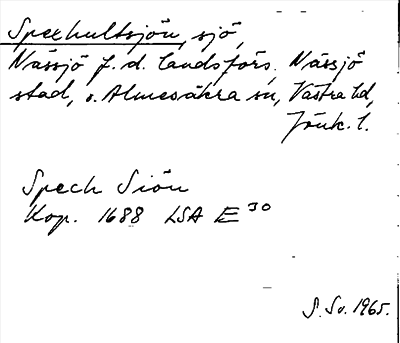 Spexhultsjön, sjö,
Nässjö f.d. landsförs. Nässjö
stad, o. Almesåkra sn, Västra hd,
Jönk. l.
Spech Siön
Kop. 1688 LSA E 30
S. Sv. 1965.